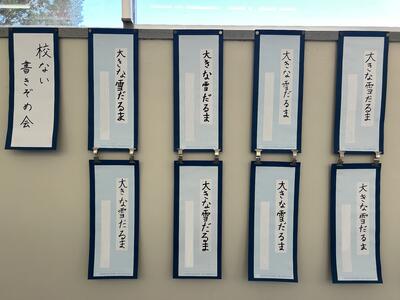 校ない
書きぞめ会
大きな雪だるま
大きな雪だるま
大きな雪だるま
大きな雪だるま
大きな雪だるま
大きな雪だるま
大きな雪だるま
大きな雪だるま